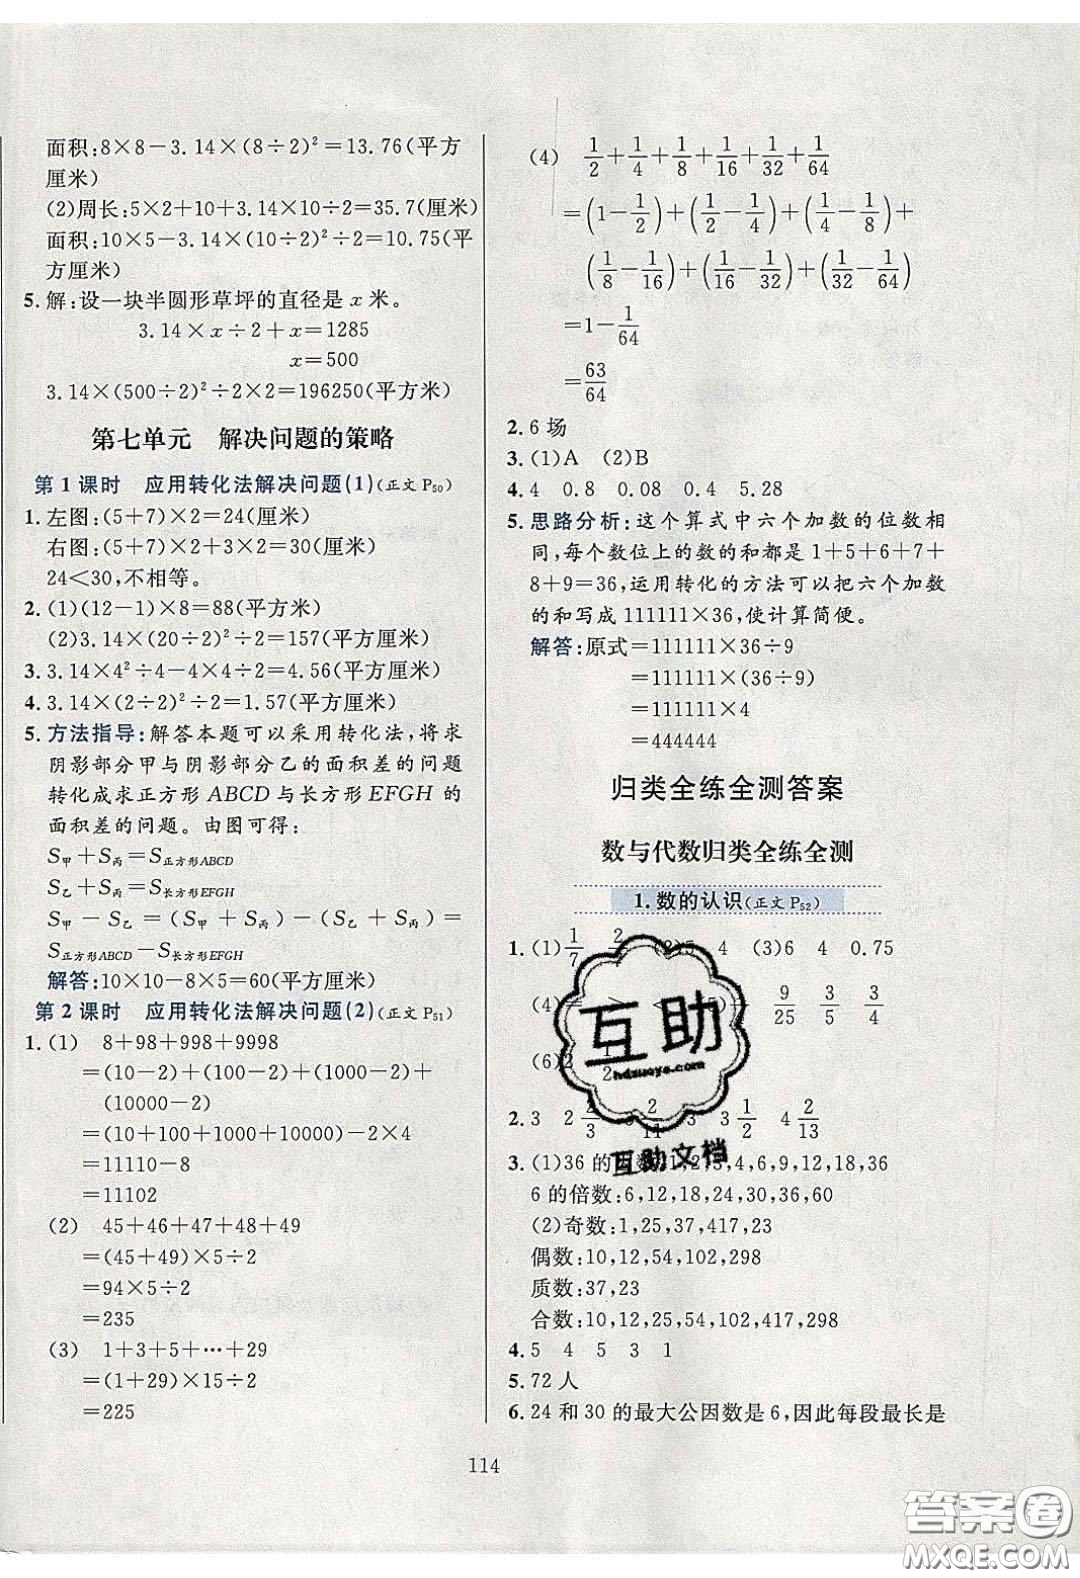 面积:8×8－3.14×(8÷2)²＝13.76(平方
厘米)
(2)周长:5×2＋10＋3.14×10÷2＝35.7(厘米)
面积:10×5－3.14×(10÷2)²÷2＝10.75(平
方厘米)
5.解:设一块半圆形草坪的直径是 x 米。
3.14×x÷2＋x＝1285
x＝500
3.14×(500÷2)²÷2×2＝196250(平方米)
第七单元　解决问题的策略
第 1 课时　应用转化法解决问题(1)(正文 P50)
1.左图:(5＋7)×2＝24(厘米)
右图:(5＋7)×2＋3×2＝30(厘米)
24＜30,不相等。
2.(1)(12－1)×8＝88(平方米)
(2)3.14×(20÷2)²÷2＝157(平方厘米)
3.3.14×4²÷4－4×4÷2＝4.56(平方厘米)
4.3.14×(2÷2)²÷2＝1.57(平方厘米)
5.方法指导:解答本题可以采用转化法,将求
阴影部分甲与阴影部分乙的面积差的问题
转化成求正方形 ABCD 与长方形 EFGH 的
面积差的问题。由图可得:
S甲＋S丙＝S正方形ABCD
S乙＋S丙＝S长方形EFGH
S甲－S乙＝(S甲＋S丙)－(S乙＋S丙)＝
S正方形ABCD－S长方形EFGH
解答:10×10－8×5＝60(平方厘米)
第 2 课时　应用转化法解决问题(2)(正文 P51)
1.(1)　8＋98＋998＋9998
＝(10－2)＋(100－2)＋(1000－2)＋
(10000－2)
＝(10＋100＋1000＋10000)－2×4
＝11110－8
＝11102
(2)　45＋46＋47＋48＋49
＝(45＋49)×5÷2
＝94×5÷2
＝235
(3)　1＋3＋5＋…＋29
＝(1＋29)×15÷2
＝225
(4)　1/2＋1/4＋1/8＋1/16＋1/32＋1/64
＝(1－1/2)＋(1/2－1/4)＋(1/4－1/8)＋
(1/8－1/16)＋(1/16－1/32)＋(1/32－1/64)
＝1－1/64
＝63/64
2.6 场
3.(1)A　(2)B
4.4　0.8　0.08　0.4　5.28
5.思路分析:这个算式中六个加数的位数相
同,每个数位上的数的和都是 1＋5＋6＋7＋
8＋9＝36,运用转化的方法可以把六个加数
的和写成 111111×36,使计算简便。
解答:原式＝111111×36÷9
＝111111×(36÷9)
＝111111×4
＝444444
归类全练全测答案
数与代数归类全练全测
1.数的认识(正文 P52)
1.(1)1/7　(2)5　4　(3)6　4　0.75
(4)＝　＞　9/25　3/5　3/4
(6)2
2.3　2 2/3　3　3 1/2　4 2/13
3.(1)36 的因数:1,2,3,4,6,9,12,18,36
6 的倍数:6,12,18,24,30,36,60
(2)奇数:1,25,37,417,23
偶数:10,12,54,102,298
质数:37,23
合数:10,12,25,54,102,417,298
4.5　4　5　3　1
5.72 人
6.24 和 30 的最大公因数是 6,因此每段最长是
114
互助
hdzuoye.com
互助文档
答案圈
MXQE.COM